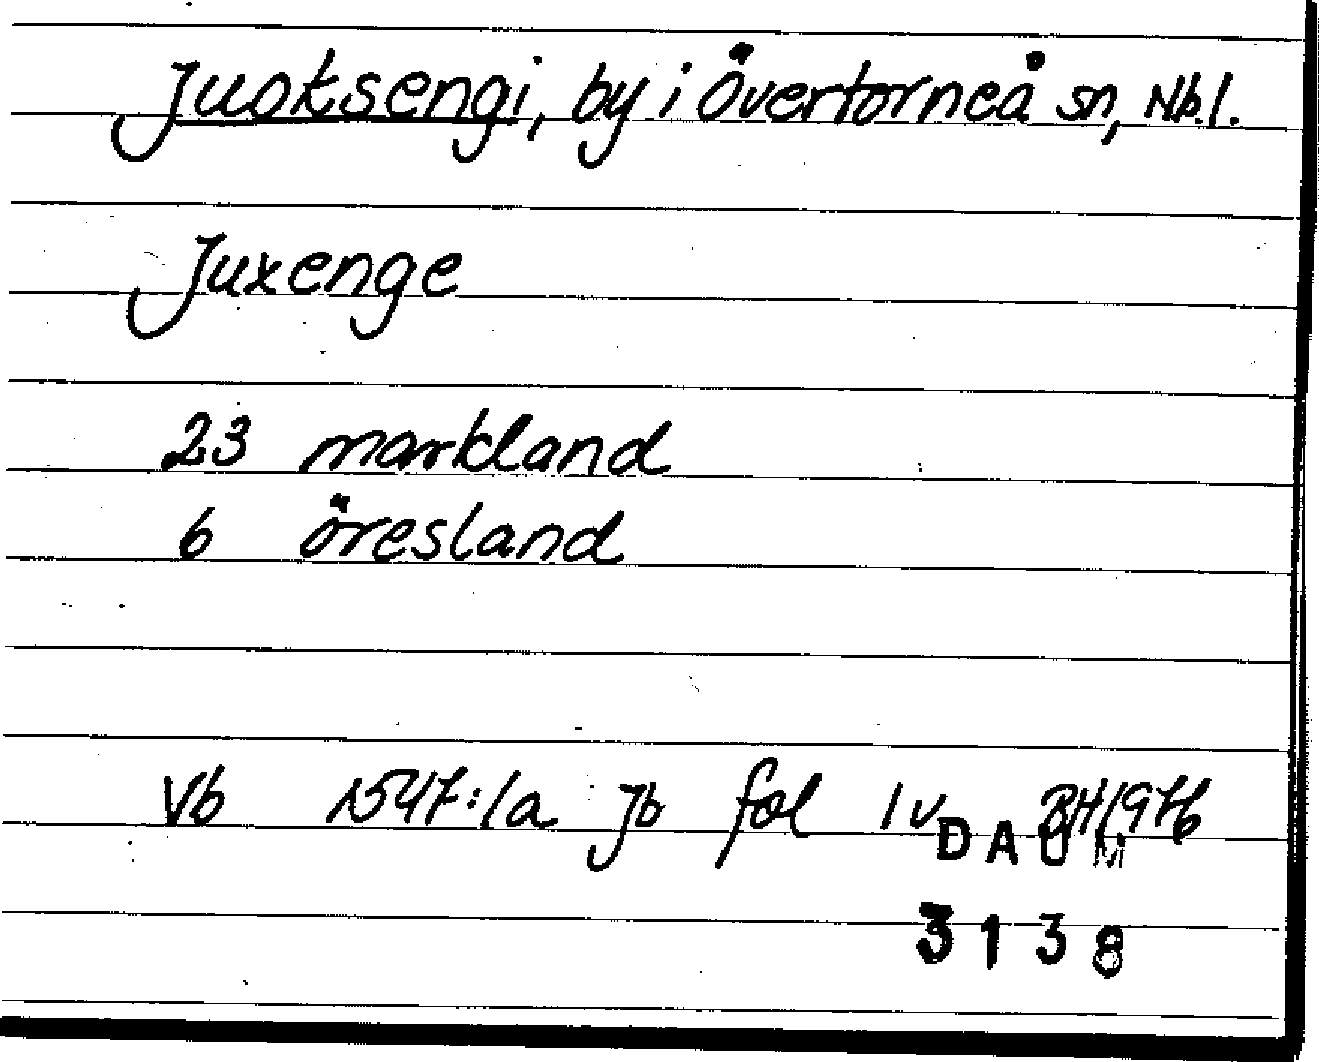 Juoksengi, by i Övertorneå sn, Nb.l.
Juxenge
23 markland
6 öresland
Vb 1547:1a Jb fol 1v BH/976
DAUM
3138